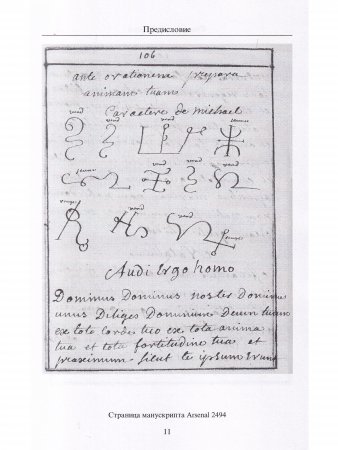 Предисловие
106
ante orationem prepara
animam tuam
Caractere de michael
Audi Ergo homo
Dominus Dominus noster Domin
unus Diliges Dominum Deum tuum
ex toto Corde tuo ex tota anima
tua et tota fortitudine tua et
proximum sicut te ipsum
Страница манускрипта Arsenal 2494
11